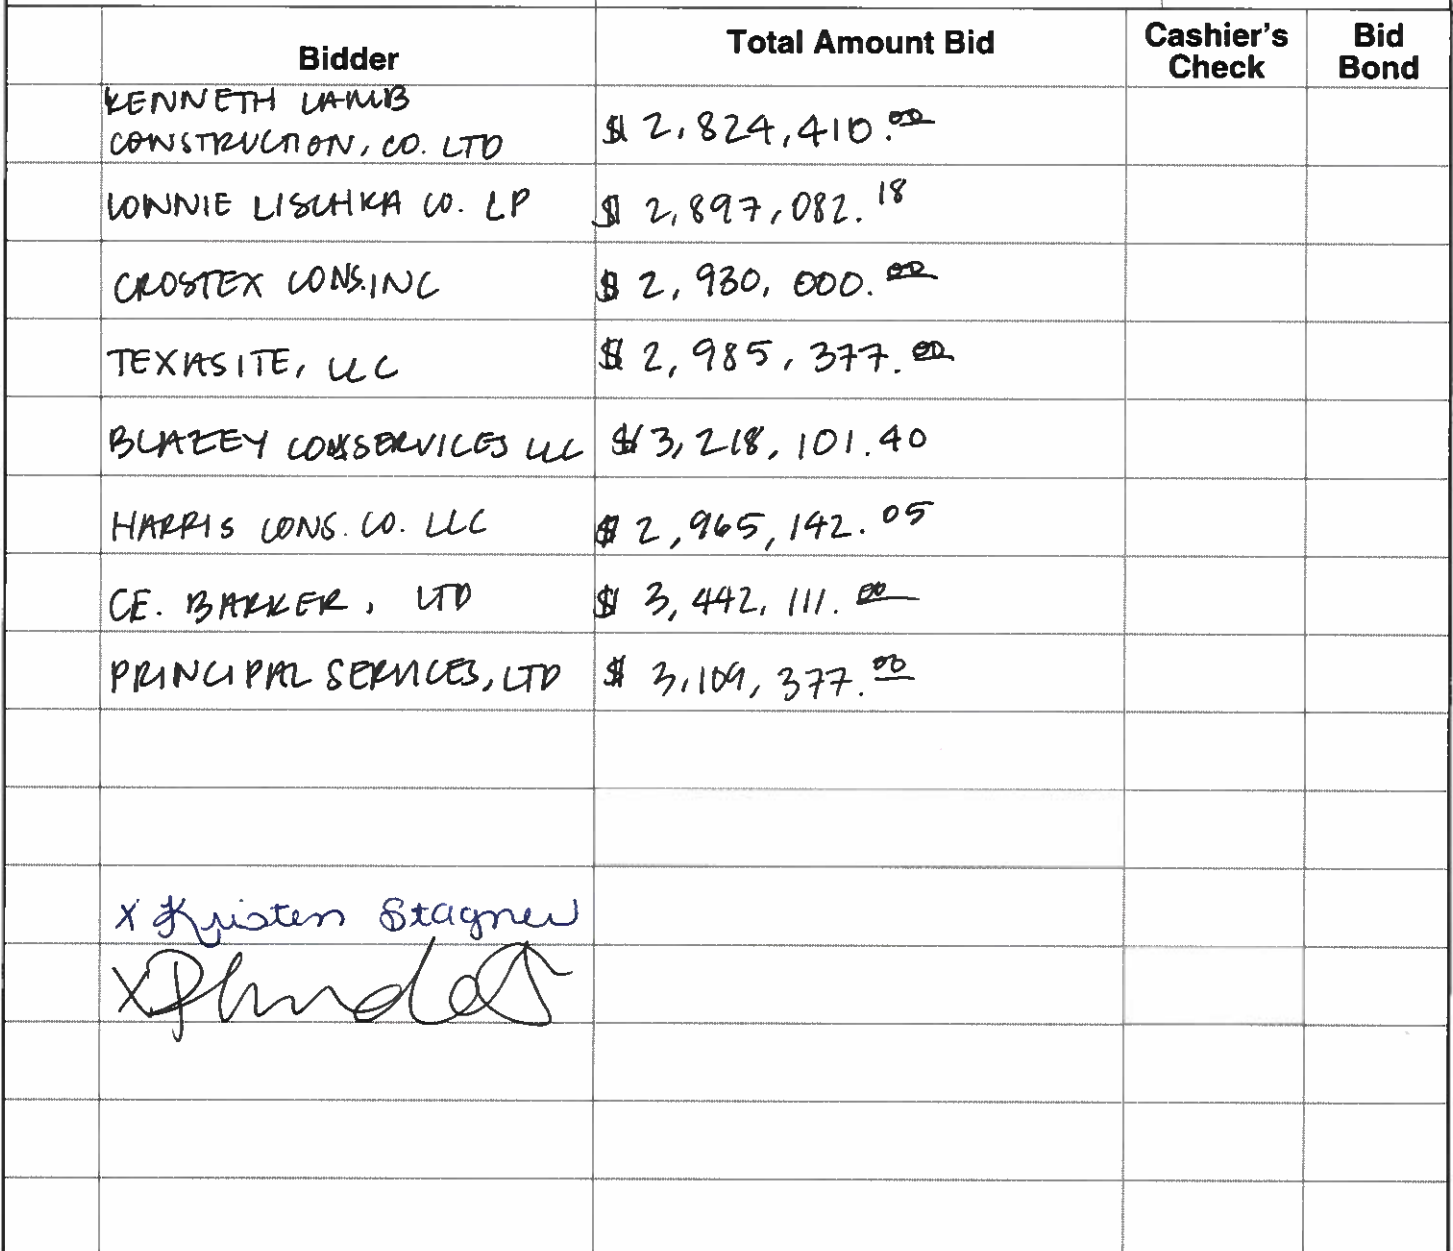 Bidder Total Amount Bid Cashier's Check Bid Bond
KENNETH LAMB
CONSTRUCTION, CO. LTD $ 2,824,410.00
LONNIE LISCHKA CO. LP $ 2,897,082.18
CROSTEX CONS. INC $ 2,930,000.00
TEXASITE, LLC $ 2,985,377.00
BLAZEY CONSSERVICES LLC $ 3,218,101.40
HARRIS CONS. CO. LLC $ 2,965,142.05
CE. BARKER, LTD $ 3,442,111.00
PRINCIPAL SERVICES, LTD $ 3,109,377.00
X Kristen Stagner
X